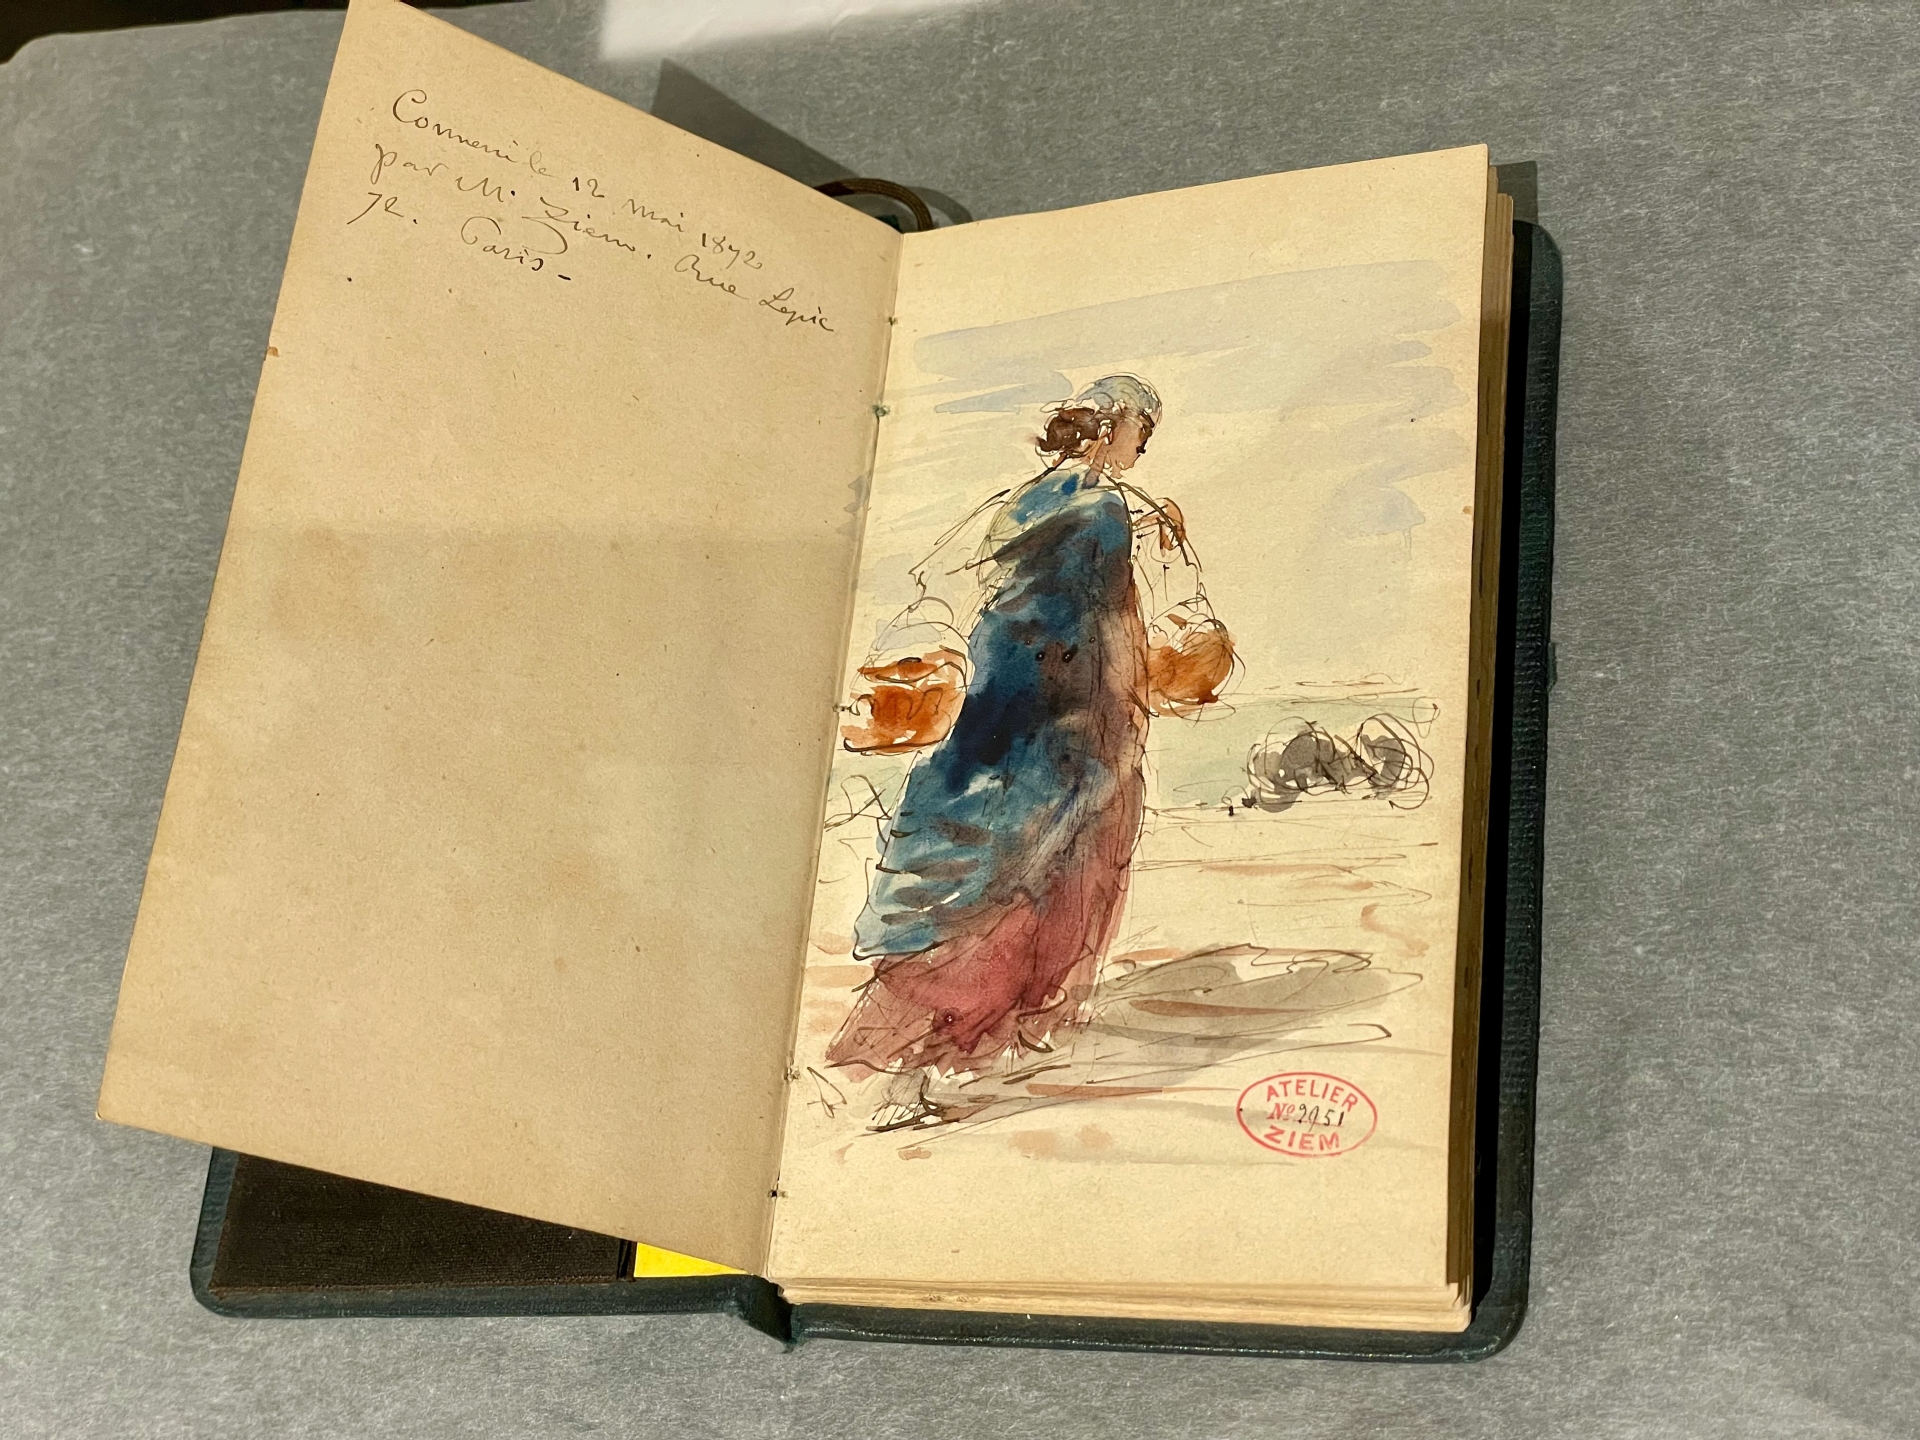 Commencé le 12 mai 1872
par M. Ziem. Rue Lepic
72. Paris -
ATELIER
No 2951
ZIEM